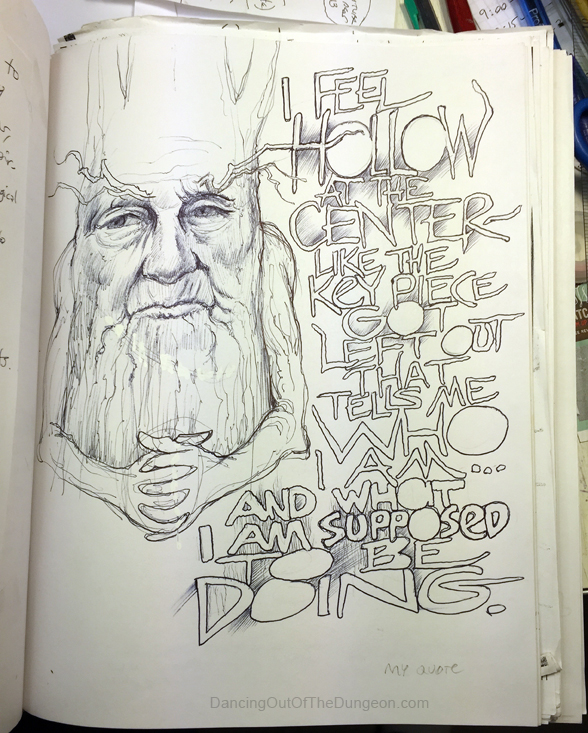 9:00
I FEEL
HOLLOW
AT THE
CENTER-
LIKE THE
KEY PIECE
GOT
LEFT OUT
THAT
TELLS ME
WHO
I AM...
AND WHAT
I AM SUPPOSED
TO BE
DOING.
MY QUOTE
DancingOutOfTheDungeon.com